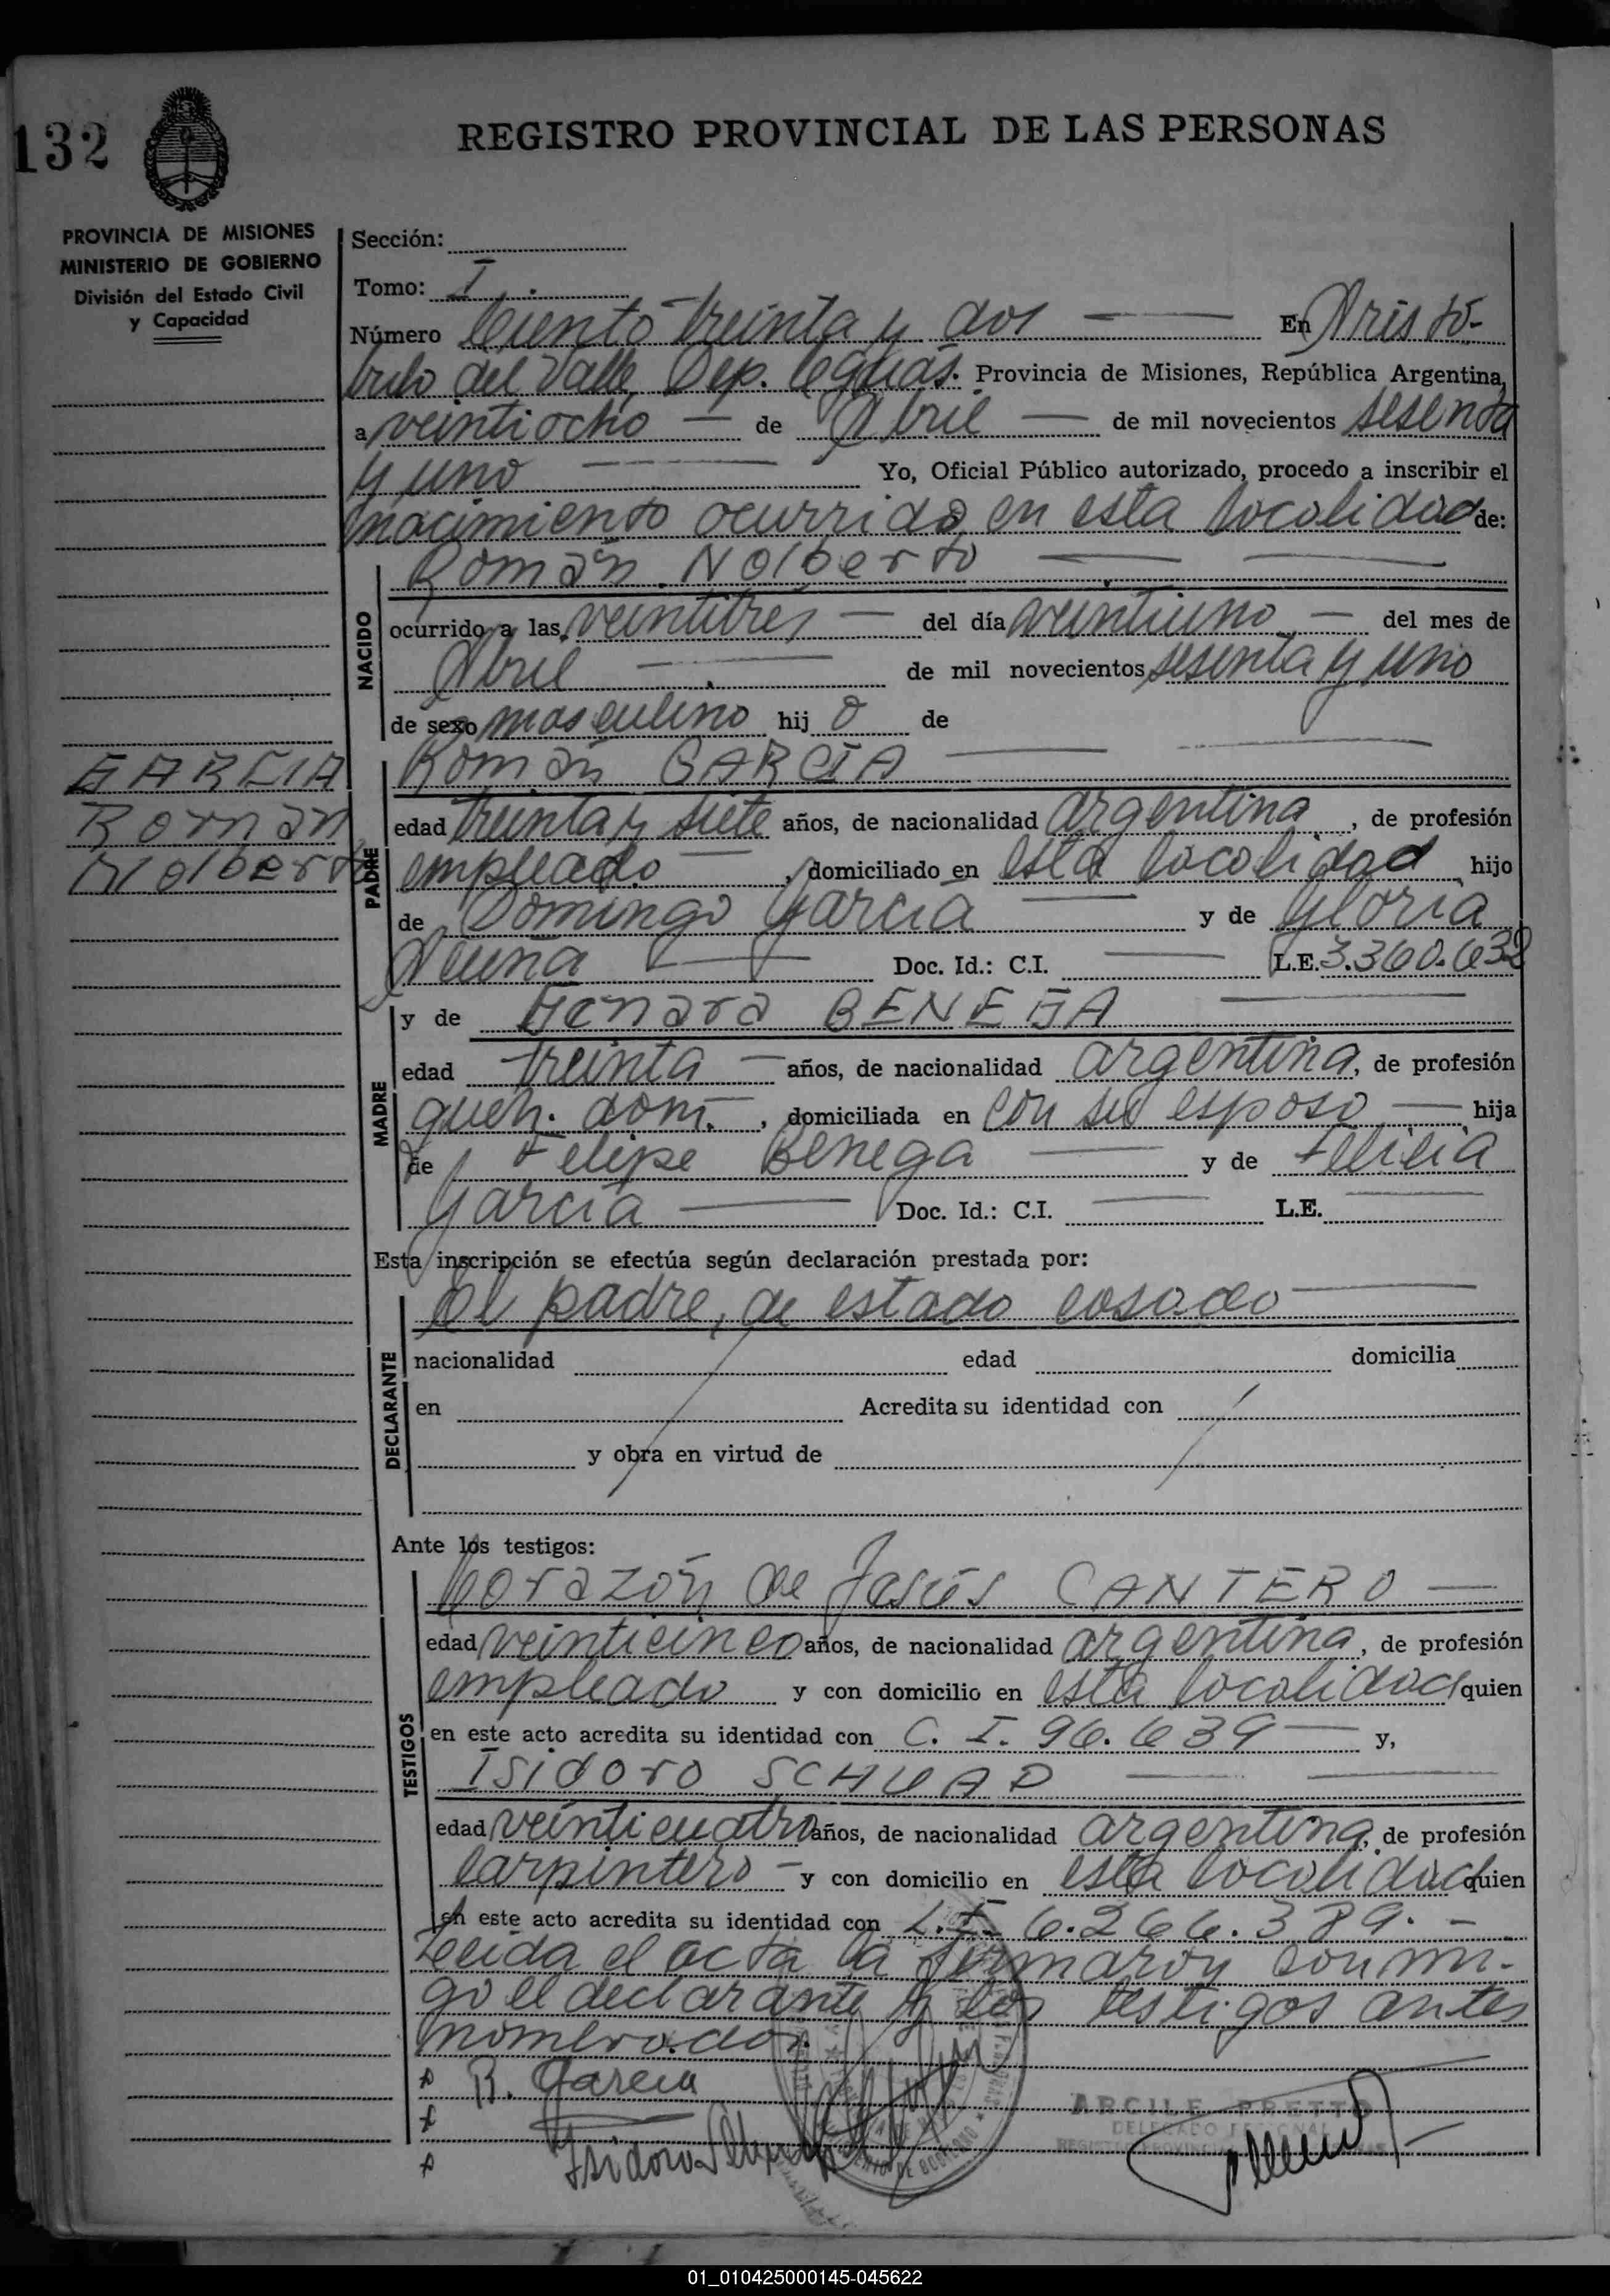 132
REGISTRO PROVINCIAL DE LAS PERSONAS
PROVINCIA DE MISIONES
MINISTERIO DE GOBIERNO
División del Estado Civil
y Capacidad
Sección:
Tomo: I.
Número Ciento treinta y dos En Aristó-
bulo del Valle, Dep. Provincia de Misiones, República Argentina,
a veintiocho de Abril de mil novecientos sesenta
y uno Yo, Oficial Público autorizado, procedo a inscribir el
nacimiento ocurrido en esta localidad de:
Román Nolberto
NACIDO
ocurrido a las veintitres del día veintiuno del mes de
Abril de mil novecientos sesenta y uno
de sexo masculino hij o de
GARCIA
Román
Nolberto
Román GARCIA
PADRE
edad treinta y siete años, de nacionalidad argentina, de profesión
empleado, domiciliado en esta localidad hijo
de Domingo García y de Gloria
Doc. Id.: C.I. L.E. 3.360.632
y de Genara BENEGA
MADRE
edad treinta años, de nacionalidad argentina, de profesión
queh. dom., domiciliada en con su esposo hija
de Felipe Benega y de Felicia
García Doc. Id.: C.I. L.E.
Esta inscripción se efectúa según declaración prestada por:
El padre, de estado casado
DECLARANTE
nacionalidad edad domicilia
en Acredita su identidad con
y obra en virtud de
Ante los testigos:
Corazón de Jesús CANTERO
TESTIGOS
edad veinticinco años, de nacionalidad argentina, de profesión
empleado y con domicilio en esta localidad quien
en este acto acredita su identidad con C. I. 96.639 y,
Isidoro SCHUAP
edad veinticuatro años, de nacionalidad argentina, de profesión
Carpintero y con domicilio en esta localidad quien
en este acto acredita su identidad con 6.266.389.-
Leida el acta la firmaron conmi-
go el declarante y los testigos antes
nombrados.
R. García
Isidoro
ARCILE PRETTO
DELEGADO REGIONAL
01_010425000145-045622